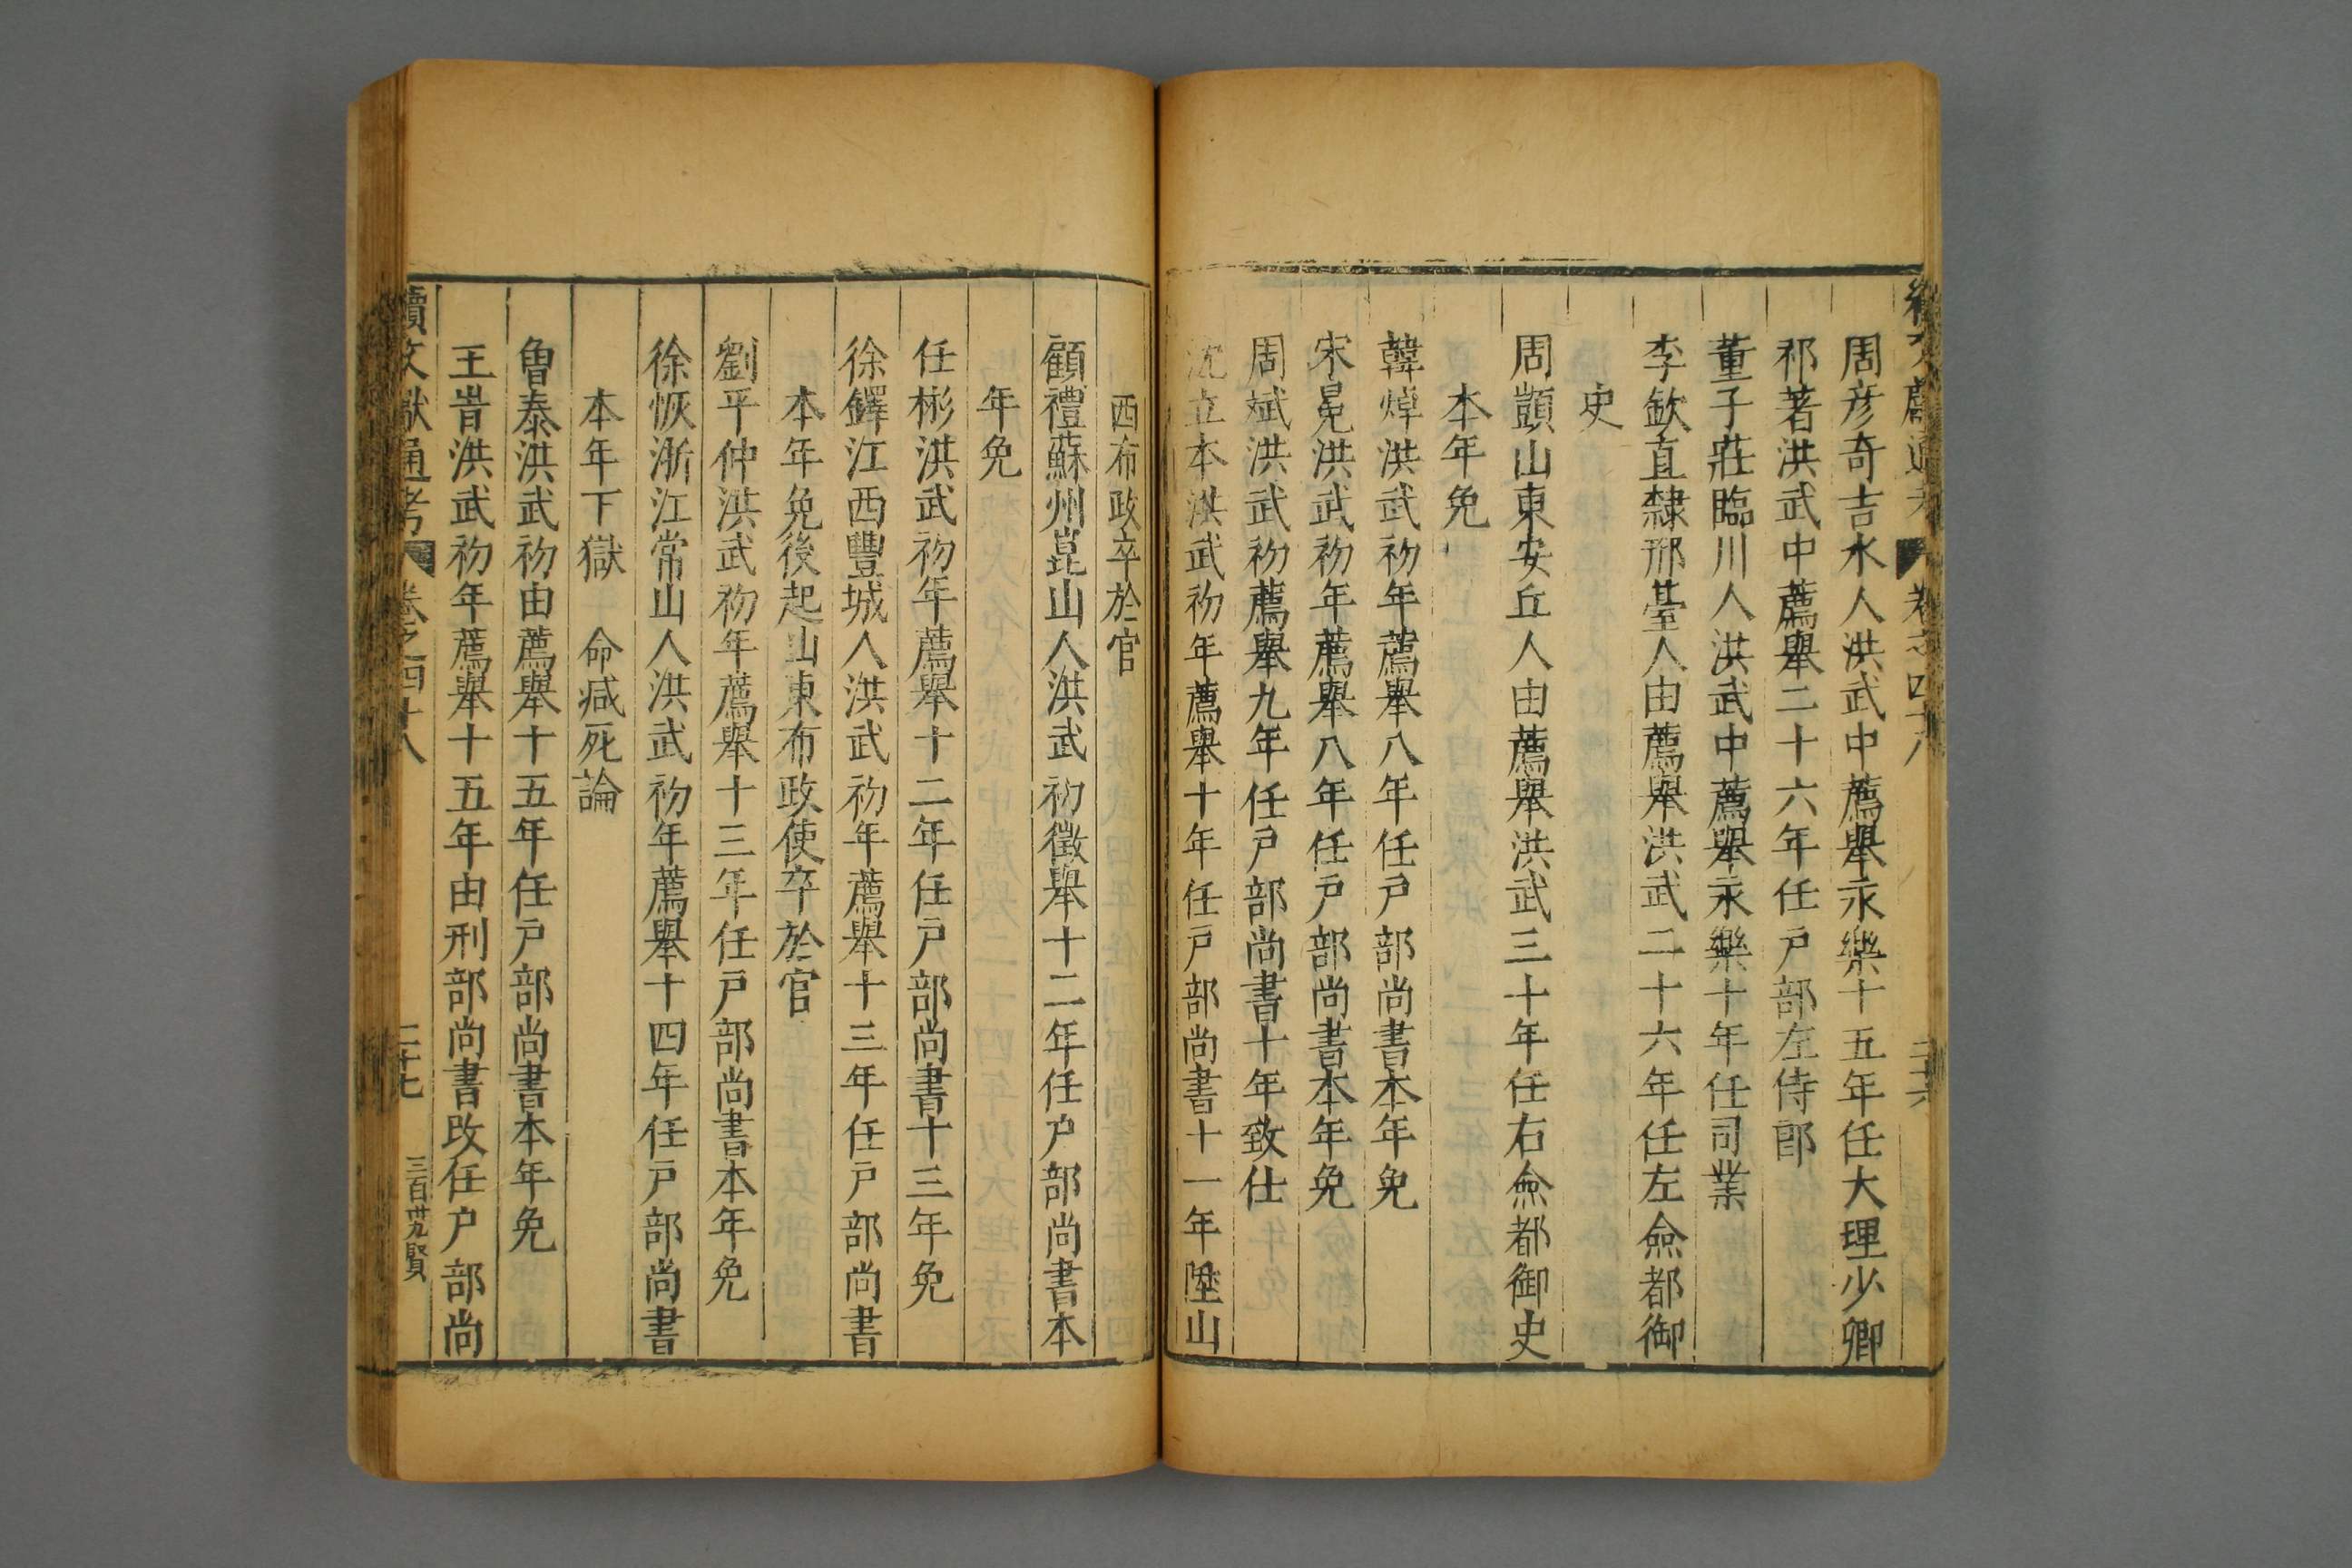 續文獻通考 卷之四十八 二十六
周彦奇吉水人洪武中薦舉永樂十五年任大理少卿
祁著洪武中薦舉二十六年任戸部左侍郎
董子莊臨川人洪武中薦舉永樂十年任司業
李欽直隸邢臺人由薦舉洪武二十六年任左僉都御
史
周顗山東安丘人由薦舉洪武三十年任右僉都御史
本年免
韓焯洪武初年薦舉八年任戸部尚書本年免
宋冕洪武初年薦舉八年任戸部尚書本年免
周斌洪武初薦舉九年任戸部尚書十年致仕
沈立本洪武初年薦舉十年任戸部尚書十一年陞山
西布政卒於官
顧禮蘇州崑山人洪武初徵舉十二年任户部尚書本
年免
任彬洪武初年薦舉十二年任戸部尚書十三年免
徐鐸江西豐城人洪武初年薦舉十三年任戸部尚書
本年免後起山東布政使卒於官
劉平仲洪武初年薦舉十三年任戸部尚書本年免
徐恢浙江常山人洪武初年薦舉十四年任戸部尚書
本年下獄 命减死論
魯泰洪武初由薦舉十五年任戸部尚書本年免
王峕洪武初年薦舉十五年由刑部尚書改任户部尚
續文獻通考 卷之四十八 二十七 三百卅九賢